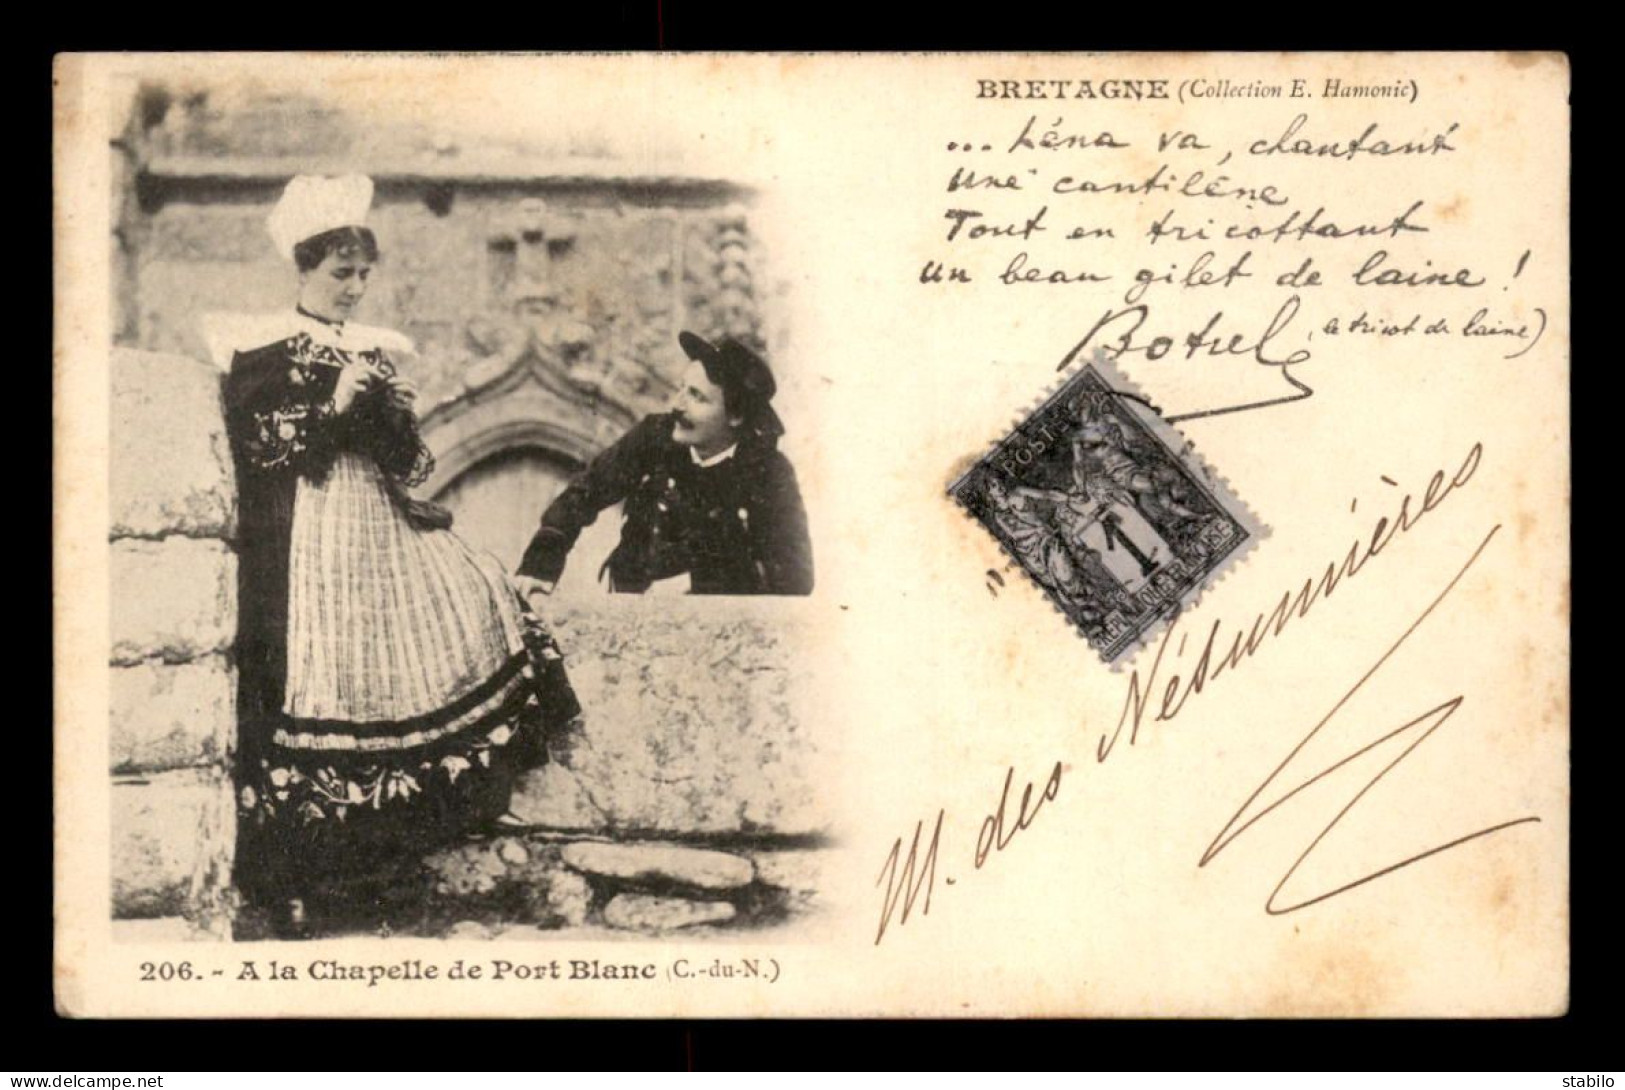 BRETAGNE (Collection E. Hamonic)
... Léna va, chantant
une cantilène
Tout en tricottant
un beau gilet de laine !
Botrel (le tricot de laine)
POSTES
1
REPUBLIQUE FRANÇAISE
M. des Nésumières
206. - A la Chapelle de Port Blanc (C.-du-N.)
stabilo